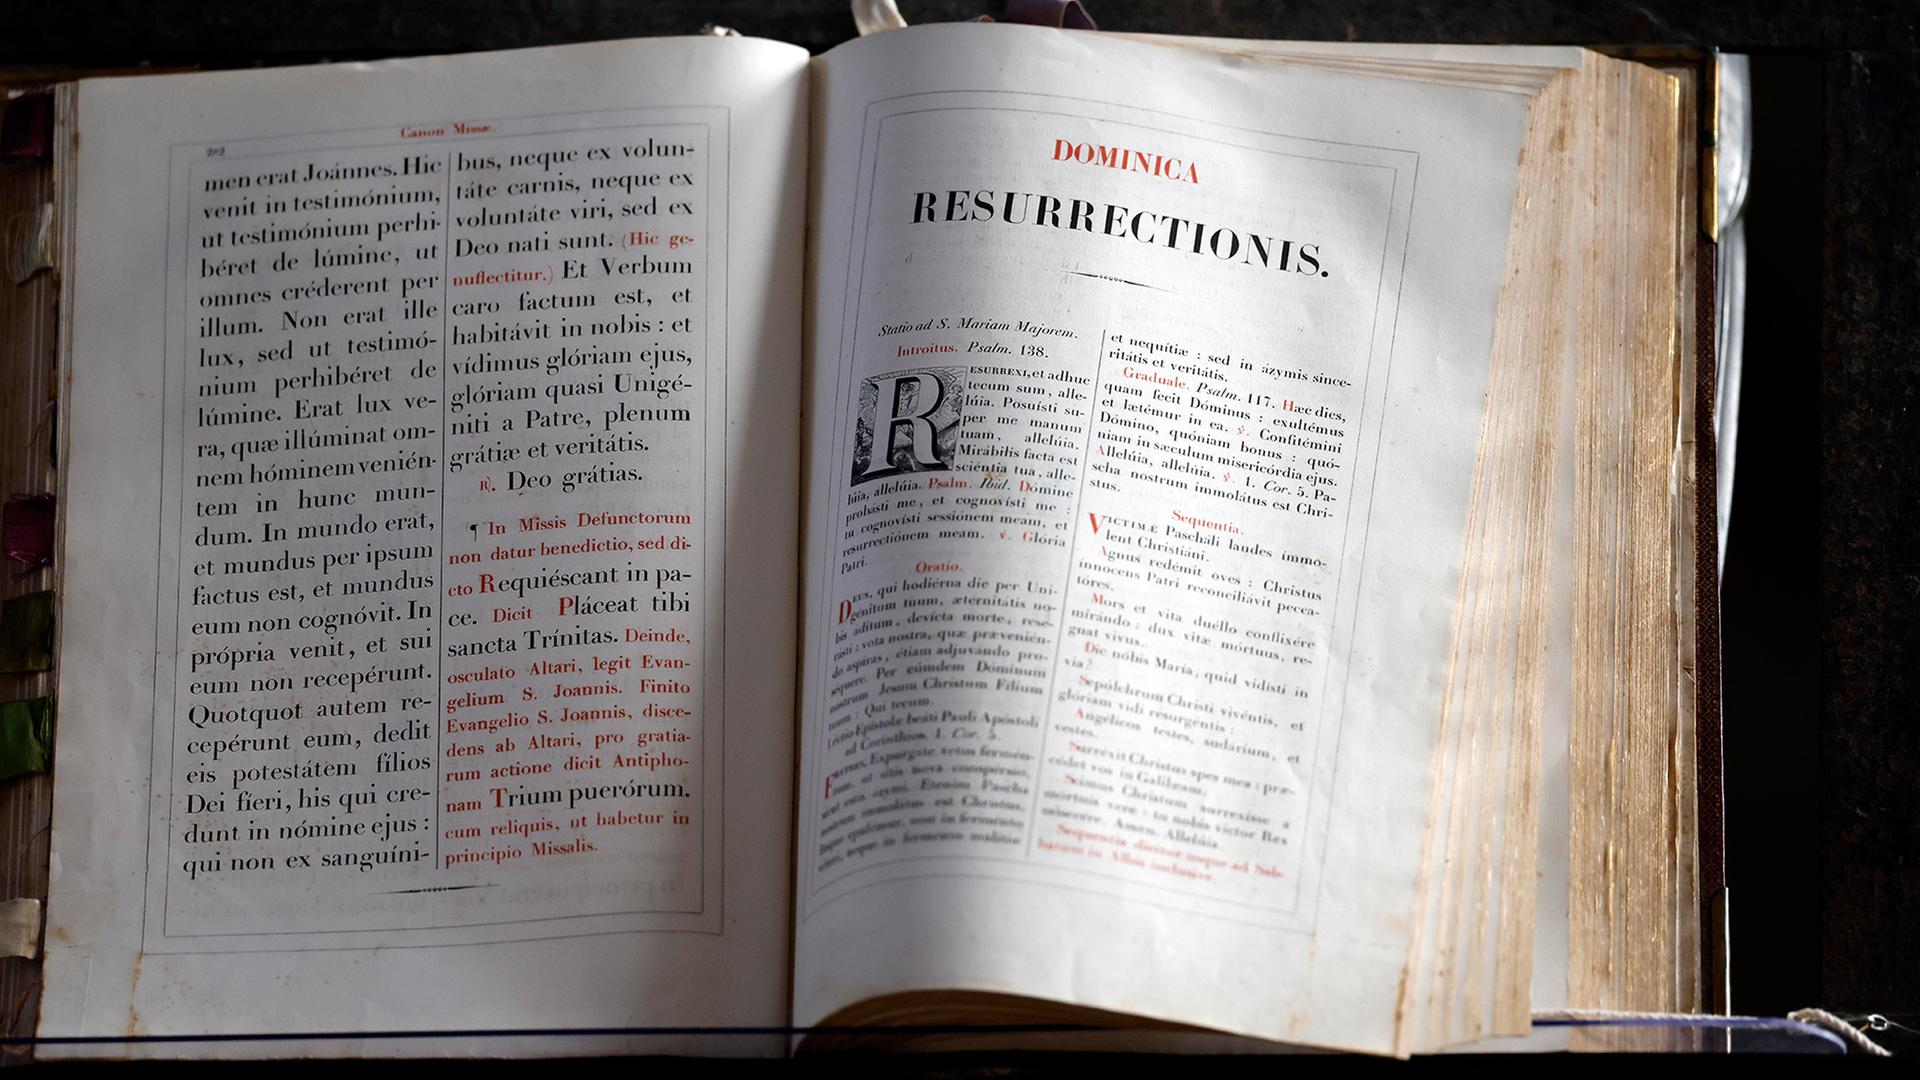 Canon Missæ.
282
men erat Joánnes. Hic
venit in testimónium,
ut testimónium perhi-
béret de lúmine, ut
omnes créderent per
illum. Non erat ille
lux, sed ut testimó-
nium perhibéret de
lúmine. Erat lux ve-
ra, quæ illúminat om-
nem hóminem venién-
tem in hunc mun-
dum. In mundo erat,
et mundus per ipsum
factus est, et mundus
eum non cognóvit. In
própria venit, et sui
eum non recepérunt.
Quotquot autem re-
cepérunt eum, dedit
eis potestátem fílios
Dei fíeri, his qui cre-
dunt in nómine ejus :
qui non ex sanguíni-
bus, neque ex volun-
táte carnis, neque ex
voluntáte viri, sed ex
Deo nati sunt. (Hic ge-
nuflectitur.) Et Verbum
caro factum est, et
habitávit in nobis : et
vídimus glóriam ejus,
glóriam quasi Unigé-
niti a Patre, plenum
grátiæ et veritátis.
℟. Deo grátias.
¶ In Missis Defunctorum
non datur benedictio, sed di-
cto Requiéscant in pa-
ce. Dicit Pláceat tibi
sancta Trínitas. Deinde,
osculato Altari, legit Evan-
gelium S. Joannis. Finito
Evangelio S. Joannis, disce-
dens ab Altari, pro gratia-
rum actione dicit Antipho-
nam Trium puerórum.
cum reliquis, ut habetur in
principio Missalis.
DOMINICA
RESURRECTIONIS.
Statio ad S. Mariam Majorem.
Introitus. Psalm. 138.
RESURREXI, et adhuc
tecum sum, alle-
lúia. Posuísti su-
per me manum
tuam, allelúia.
Mirábilis facta est
sciéntia tua, alle-
lúia, allelúia. Psalm. Ibid. Dómine
probásti me, et cognovísti me :
tu cognovísti sessiónem meam, et
resurrectiónem meam. ℣. Glória
Patri.
Oratio.
Deus, qui hodiérna die per Uni-
génitum tuum, æternitátis no-
bis áditum, devícta morte, rese-
rásti : vota nostra, quæ prævenién-
do aspíras, étiam adjuvándo pro-
séquere. Per eúmdem Dóminum
nostrum Jesum Christum Fílium
tuum : Qui tecum.
Léctio Epístolæ beáti Pauli Apóstoli
ad Corínthios. 1. Cor. 5.
Fratres, Expurgáte vetus fermén-
tum, ut sitis nova conspérsio,
sicut estis ázymi. Etenim Pascha
nostrum immolátus est Christus.
Itaque epulémur, non in ferménto
véteri, neque in ferménto malítiæ
et nequítiæ : sed in ázymis since-
ritátis et veritátis.
Graduale. Psalm. 117. Hæc dies,
quam fecit Dóminus : exultémus
et lætémur in ea. ℣. Confitémini
Dómino, quóniam bonus : quó-
niam in sæculum misericórdia ejus.
Allelúia, allelúia. ℣. 1. Cor. 5. Pa-
scha nostrum immolátus est Chri-
stus.
Sequentia.
Victimæ Pascháli laudes immo-
lent Christiáni.
Agnus redémit oves : Christus
ínnocens Patri reconciliávit pecca-
tóres.
Mors et vita duéllo conflixére
mirándo : dux vitæ mórtuus, re-
gnat vivus.
Dic nóbis María, quid vidísti in
via ?
Sepúlchrum Christi vivéntis, et
glóriam vidi resurgéntis :
Angélicos testes, sudárium, et
vestes.
Surréxit Christus spes mea : præ-
cédet vos in Galilǽam.
Scimus Christum surrexísse a
mórtuis vere : tu nobis victor Rex
miserére. Amen. Allelúia.
Sequentia dicitur usque ad Sab-
batum in Albis inclusive.